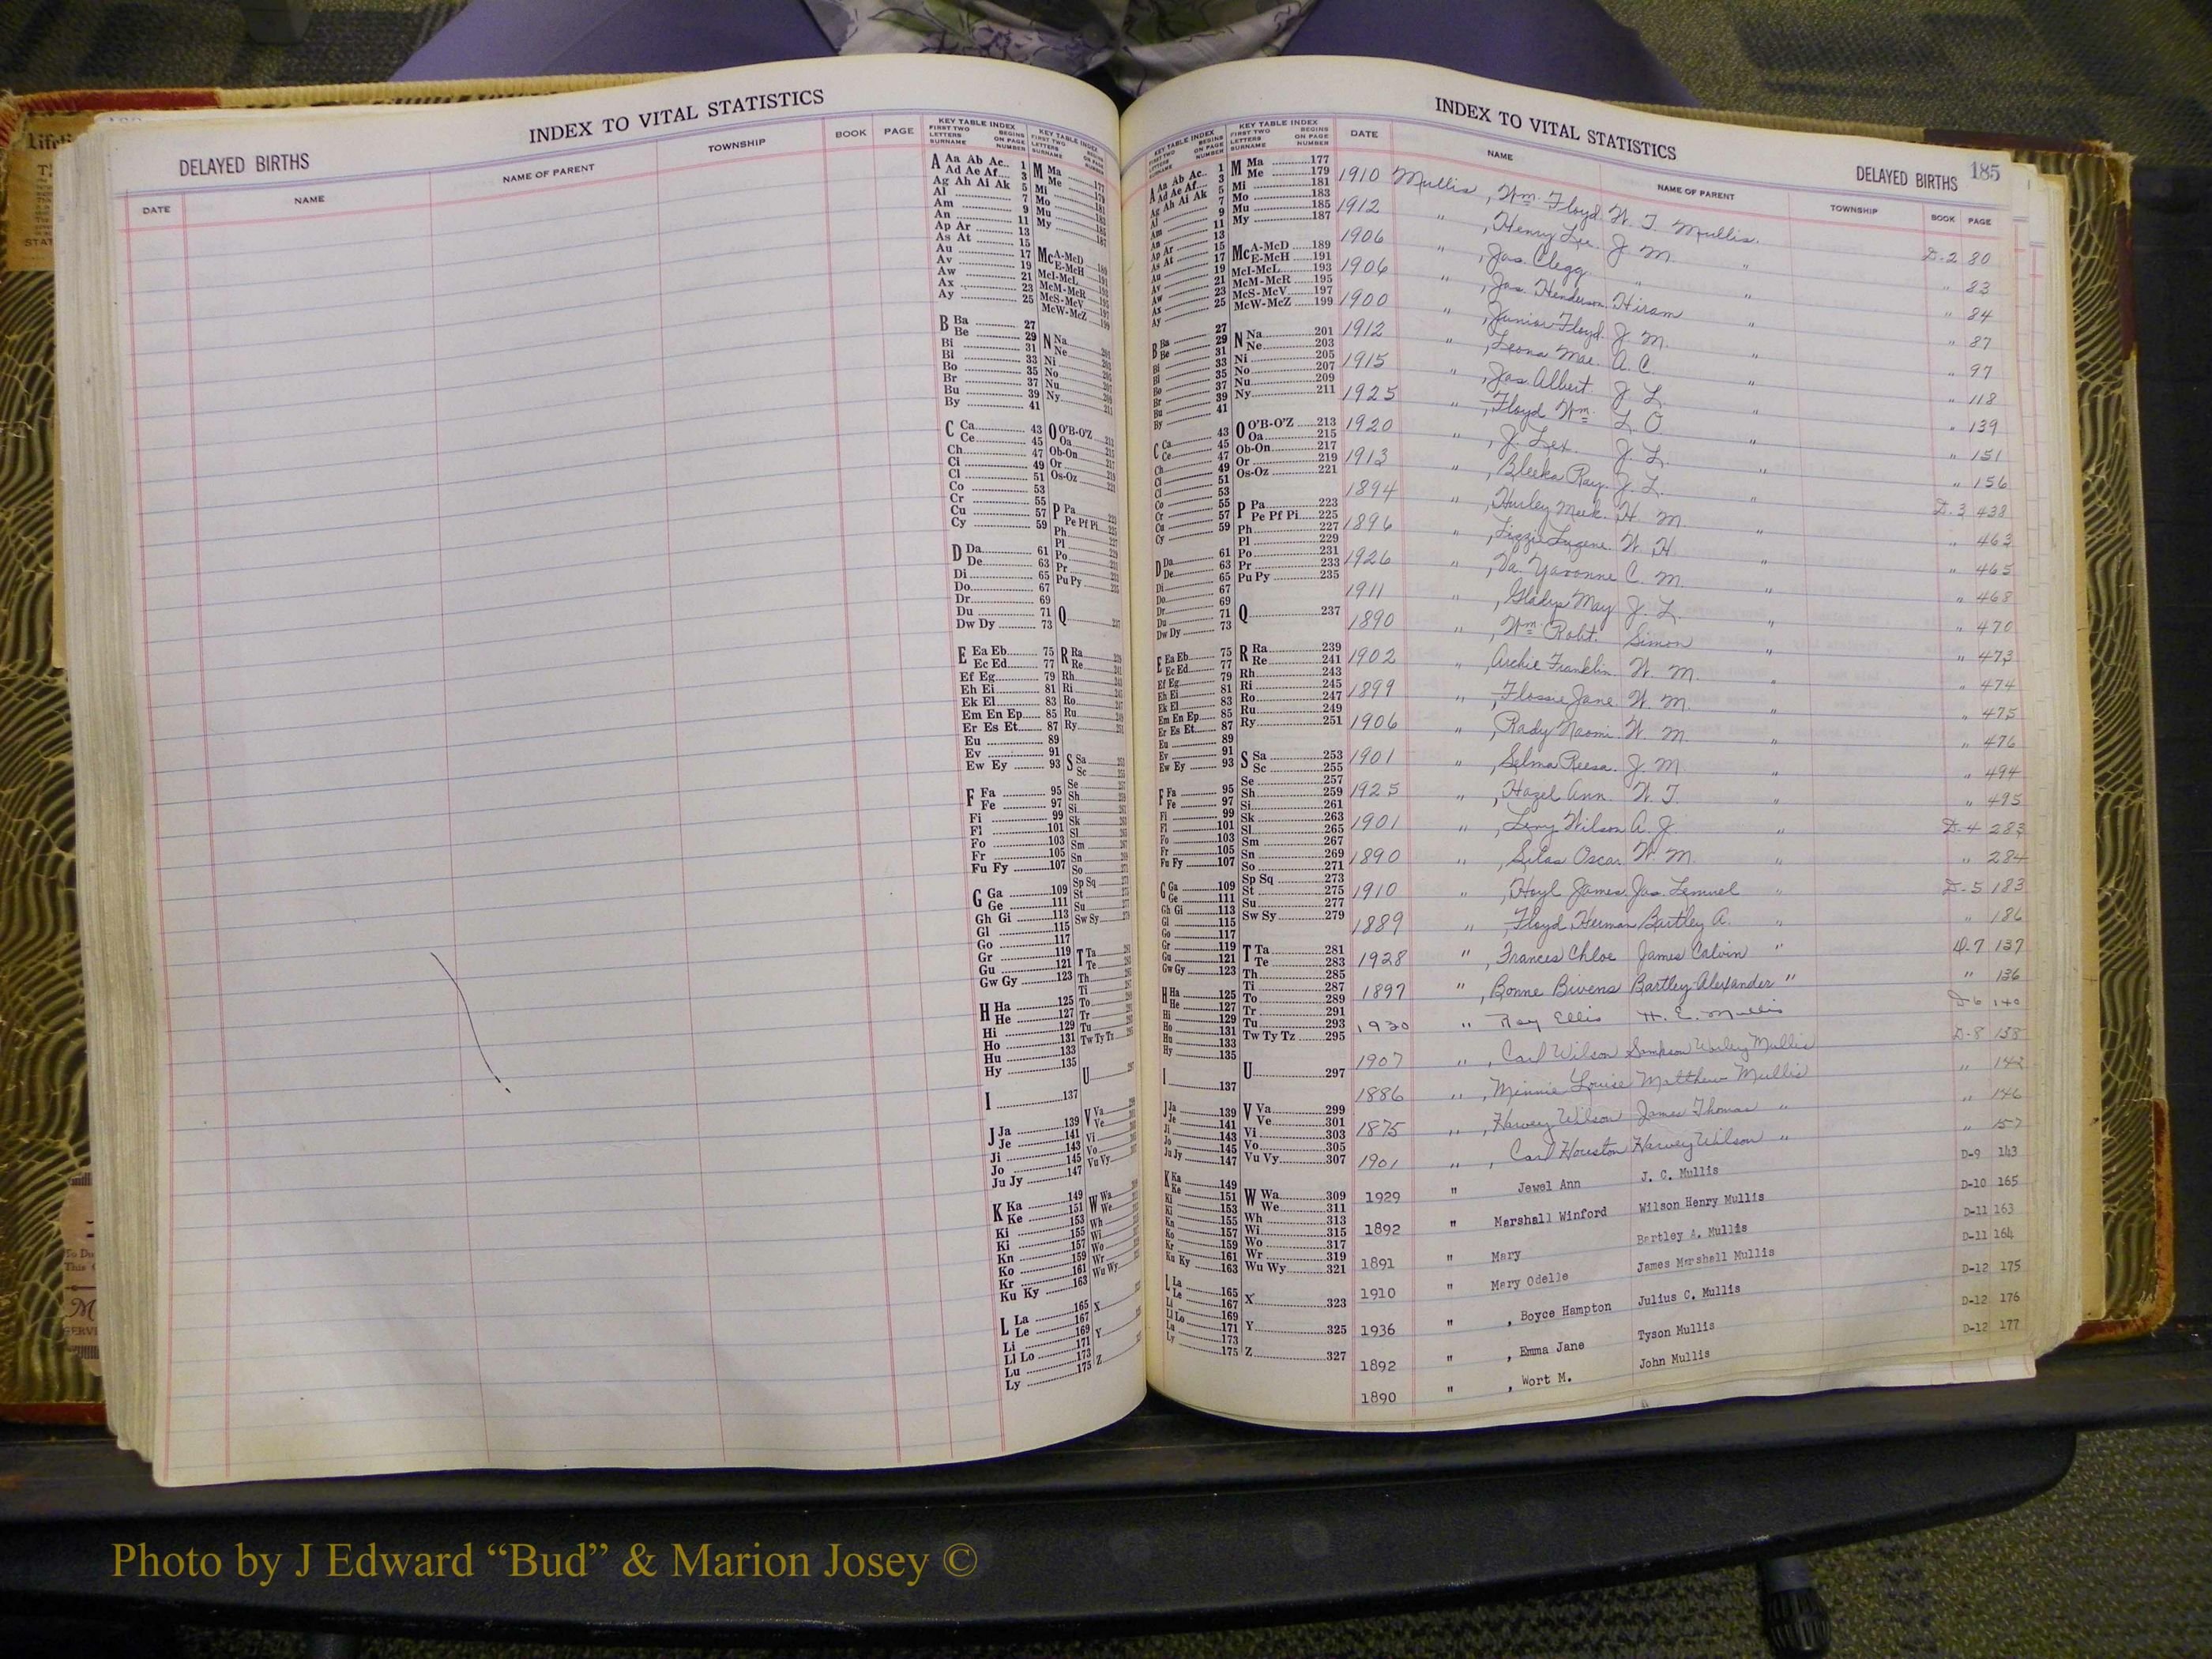 INDEX TO VITAL STATISTICS
DELAYED BIRTHS
DATE NAME NAME OF PARENT TOWNSHIP BOOK PAGE
KEY TABLE INDEX
FIRST TWO LETTERS SURNAME BEGINS ON PAGE NUMBER
A Aa Ab Ac 1
Ad Ae Af 3
Ag Ah Ai Ak 5
Al 7
Am 9
An 11
Ap Ar 13
As At 15
Au 17
Av 19
Aw 21
Ax 23
Ay 25
B Ba 27
Be 29
Bi 31
Bl 33
Bo 35
Br 37
Bu 39
By 41
C Ca 43
Ce 45
Ch 47
Ci 49
Cl 51
Co 53
Cr 55
Cu 57
Cy 59
D Da 61
De 63
Di 65
Do 67
Dr 69
Du 71
Dw Dy 73
E Ea Eb 75
Ec Ed 77
Ef Eg 79
Eh Ei 81
Ek El 83
Em En Ep 85
Er Es Et 87
Eu 89
Ev 91
Ew Ey 93
F Fa 95
Fe 97
Fi 99
Fl 101
Fo 103
Fr 105
Fu Fy 107
G Ga 109
Ge 111
Gh Gi 113
Gl 115
Go 117
Gr 119
Gu 121
Gw Gy 123
H Ha 125
He 127
Hi 129
Ho 131
Hu 133
Hy 135
I 137
J Ja 139
Je 141
Ji 143
Jo 145
Ju Jy 147
K Ka 149
Ke 151
Ki 153
Kn 157
Ko 159
Kr 161
Ku Ky 163
L La 165
Le 167
Li 169
Ll Lo 171
Lu 173
Ly 175
INDEX TO VITAL STATISTICS
DELAYED BIRTHS 185
KEY TABLE INDEX
FIRST TWO LETTERS SURNAME BEGINS ON PAGE NUMBER
M Ma 177
Me 179
Mi 181
Mo 183
Mu 185
My 187
McA-McD 189
McE-McH 191
McI-McL 193
McM-McR 195
McS-McV 197
McW-McZ 199
N Na 201
Ne 203
Ni 205
No 207
Nu 209
Ny 211
O O'B-O'Z 213
Oa 215
Ob-On 217
Or 219
Os-Oz 221
P Pa 223
Pe Pf Pi 225
Ph 227
Pl 229
Po 231
Pr 233
Pu Py 235
Q 237
R Ra 239
Re 241
Rh 243
Ri 245
Ro 247
Ru 249
Ry 251
S Sa 253
Sc 255
Se 257
Sh 259
Si 261
Sk 263
Sl 265
Sm 267
Sn 269
So 271
Sp Sq 273
St 275
Su 277
Sw Sy 279
T Ta 281
Te 283
Th 285
Ti 287
To 289
Tr 291
Tu 293
Tw Ty Tz 295
U 297
V Va 299
Ve 301
Vi 303
Vo 305
Vu Vy 307
W Wa 309
We 311
Wh 313
Wi 315
Wo 317
Wr 319
Wu Wy 321
X 323
Y 325
Z 327
DATE NAME NAME OF PARENT TOWNSHIP BOOK PAGE
1910 Mullis, Wm. Floyd W. T. Mullis. D-2 80
1912 " , Henry Lee J. M. " " 83
1906 " , Jas. Clegg " " " 84
1906 " , Jas. Henderson Hiram " " 87
1900 " , Junior Floyd J. M. " " 97
1912 " , Leona Mae A. C. " " 118
1915 " , Jas. Albert J. L. " " 139
1925 " , Floyd Wm. L. O. " " 151
1920 " , J. Lex. J. L. " " 156
1913 " , Bleeka Ray. J. L. " D-3 438
1894 " , Hurley Meek. H. M. " " 463
1896 " , Lizzie Eugene. W. H. " " 465
1926 " , Va. Yavonne C. M. " " 468
1911 " , Gladys May J. L. " " 470
1890 " , Wm. Robt. Simon " " 473
1902 " , Archie Franklin W. M. " " 474
1899 " , Flossie Jane W. M. " " 475
1906 " , Rady Naomi W. M " " 476
1901 " , Selma Reesa. J. M. " " 494
1925 " , Hazel Ann. W. T. " " 495
1901 " , Leny Wilson A. J. " D-4 283
1890 " , Silas Oscar W. M. " " 284
1910 " , Hoyl James. Jas. Lemuel " D-5 183
1889 " , Floyd Herman Bartley A. " " 186
1928 " , Frances Chloe James Calvin " D-7 137
1897 " , Bonne Bivens Bartley Alexander " " 136
1930 " Ray Ellis H. E. Mullis D-6 140
1907 " , Carl Wilson Sampson Worley Mullis D-8 138
1886 " , Minnie Louise Matthew Mullis " 142
1875 " , Harvey Wilson James Thomas " " 146
1901 " , Carl Houston Harvey Wilson " " 157
1929 " Jewel Ann J. C. Mullis D-9 143
1892 " Marshall Winford Wilson Henry Mullis D-10 165
1891 " Mary Bartley A. Mullis D-11 163
1910 " Mary Odelle James Marshall Mullis D-11 164
1936 " , Boyce Hampton Julius C. Mullis D-12 175
1892 " , Emma Jane Tyson Mullis D-12 176
1890 " , Wort M. John Mullis D-12 177
Photo by J Edward “Bud” & Marion Josey ©